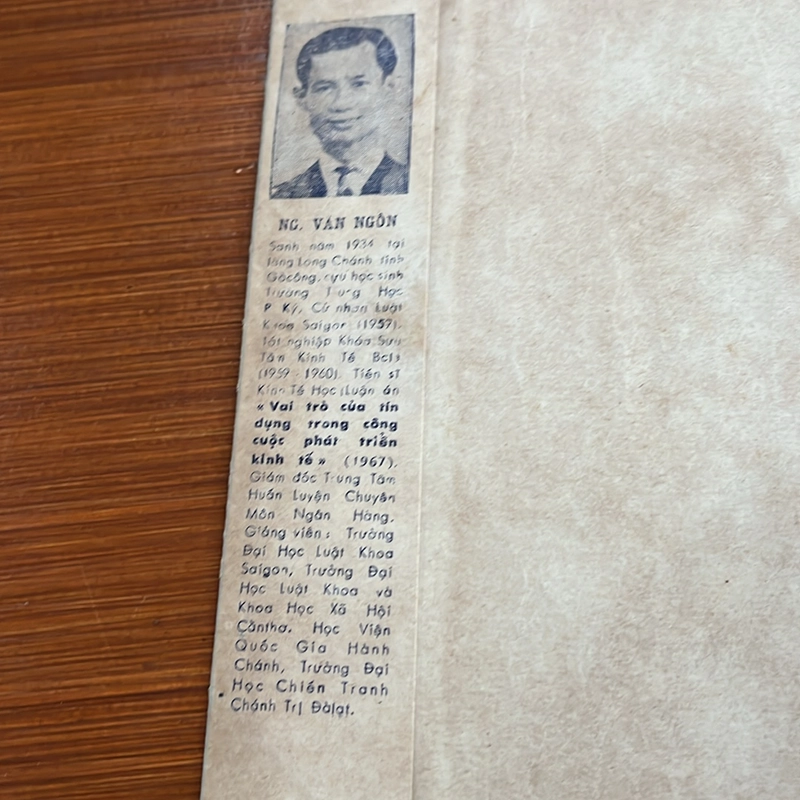 NG. VĂN NGÔN
Sanh năm 1934 tại
làng Long Chánh tỉnh
Gòcông, cựu học sinh
Trường Trung Học
P Ký, Cử nhân Luật
Khoa Saigon (1959).
Tốt nghiệp Khóa Sưu
Tầm Kinh Tế
(1959 - 1960). Tiến sĩ
Kinh Tế Học (Luận án
« Vai trò của tín
dụng trong công
cuộc phát triển
kinh tế » (1967).
Giám đốc Trung Tâm
Huấn Luyện Chuyên
Môn Ngân Hàng.
Giảng viên : Trường
Đại Học Luật Khoa
Saigon, Trường Đại
Học Luật Khoa và
Khoa Học Xã Hội
Cầnthơ. Học Viện
Quốc Gia Hành
Chánh, Trường Đại
Học Chiến Tranh
Chánh Trị Đàlạt.